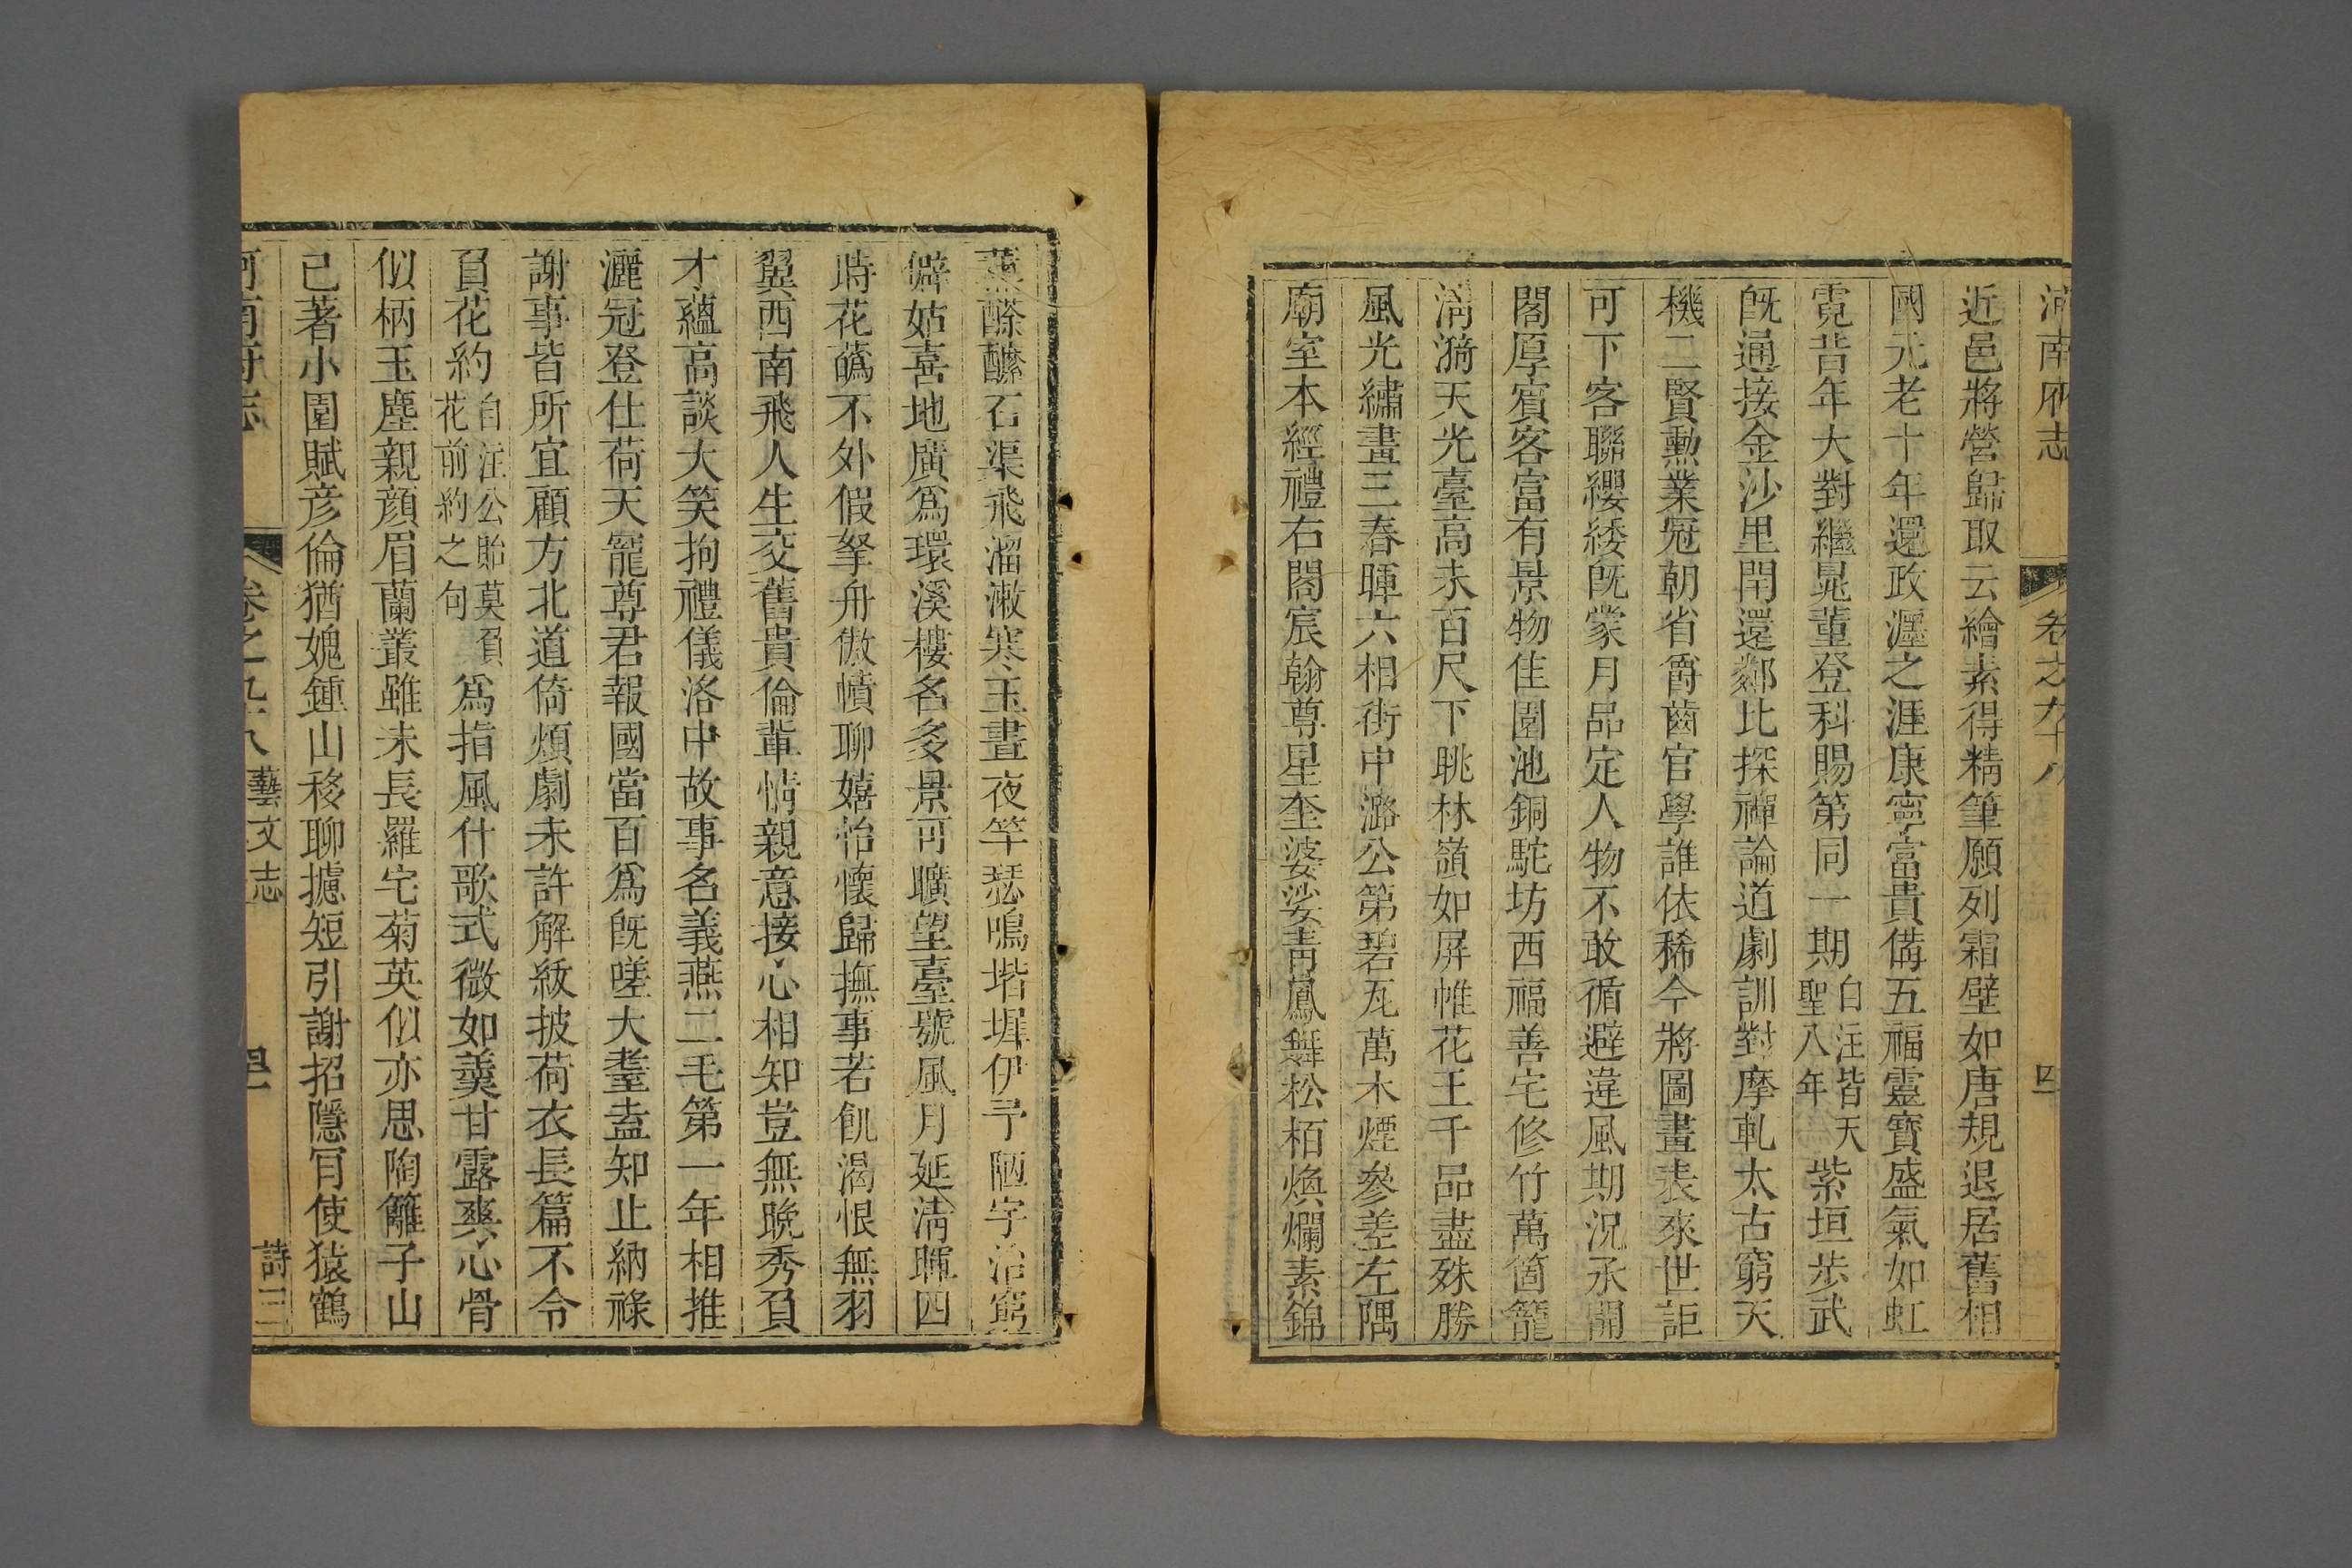 河南府志 卷之九十八 四
近邑將營歸取云繪素得精筆願列霜壁如唐規退居舊相
國元老十年還政瀍之涯康寧富貴備五福靈寶盛氣如虹
霓昔年大對繼晁董登科賜第同一期自注皆天聖八年紫垣步武
旣通接金沙里閈還鄰比探禪論道劇訓對摩軋太古窮天
機二賢勲業冠朝省爵齒官學誰依稀今將圖畫表來世詎
可下客聯纓緌旣蒙月品定人物不敢循避違風期況承開
閣厚賓客富有景物佳園池銅駝坊西福善宅修竹萬箇籠
淸漪天光臺高未百尺下眺林嶺如屏帷花王千品盡殊勝
風光繡畫三春暉六相街中潞公第碧瓦萬木煙參差左隅
廟室本經禮右閣宸翰尊星奎婆娑靑鳳舞松栢煥爛素錦
蒸酴醿石渠飛溜漱寒玉晝夜竽瑟鳴堦墀伊予陋宇治窮
僻姑喜地廣爲環溪樓名多景可曠望臺號風月延淸暉四
時花蘤不外假拏舟傲幘聊嬉怡懷歸撫事若飢渴恨無羽
翼西南飛人生交舊貴倫輩情親意接心相知豈無晩秀負
才蘊高談大笑拘禮儀洛中故事名義燕二毛第一年相推
灑冠登仕荷天寵尊君報國當百爲旣嗟大耋盍知止納祿
謝事皆所宜顧方北道倚煩劇未許解紱披荷衣長篇不令
負花約自注公貽莫負花前約之句爲指風什歌式微如羹甘露爽心骨
似柄玉麈親顔眉蘭叢雖未長羅宅菊英似亦思陶籬子山
已著小園賦彦倫猶媿鍾山移聊攄短引謝招隱肎使猿鶴
河南府志 卷之九十八 藝文志 詩三